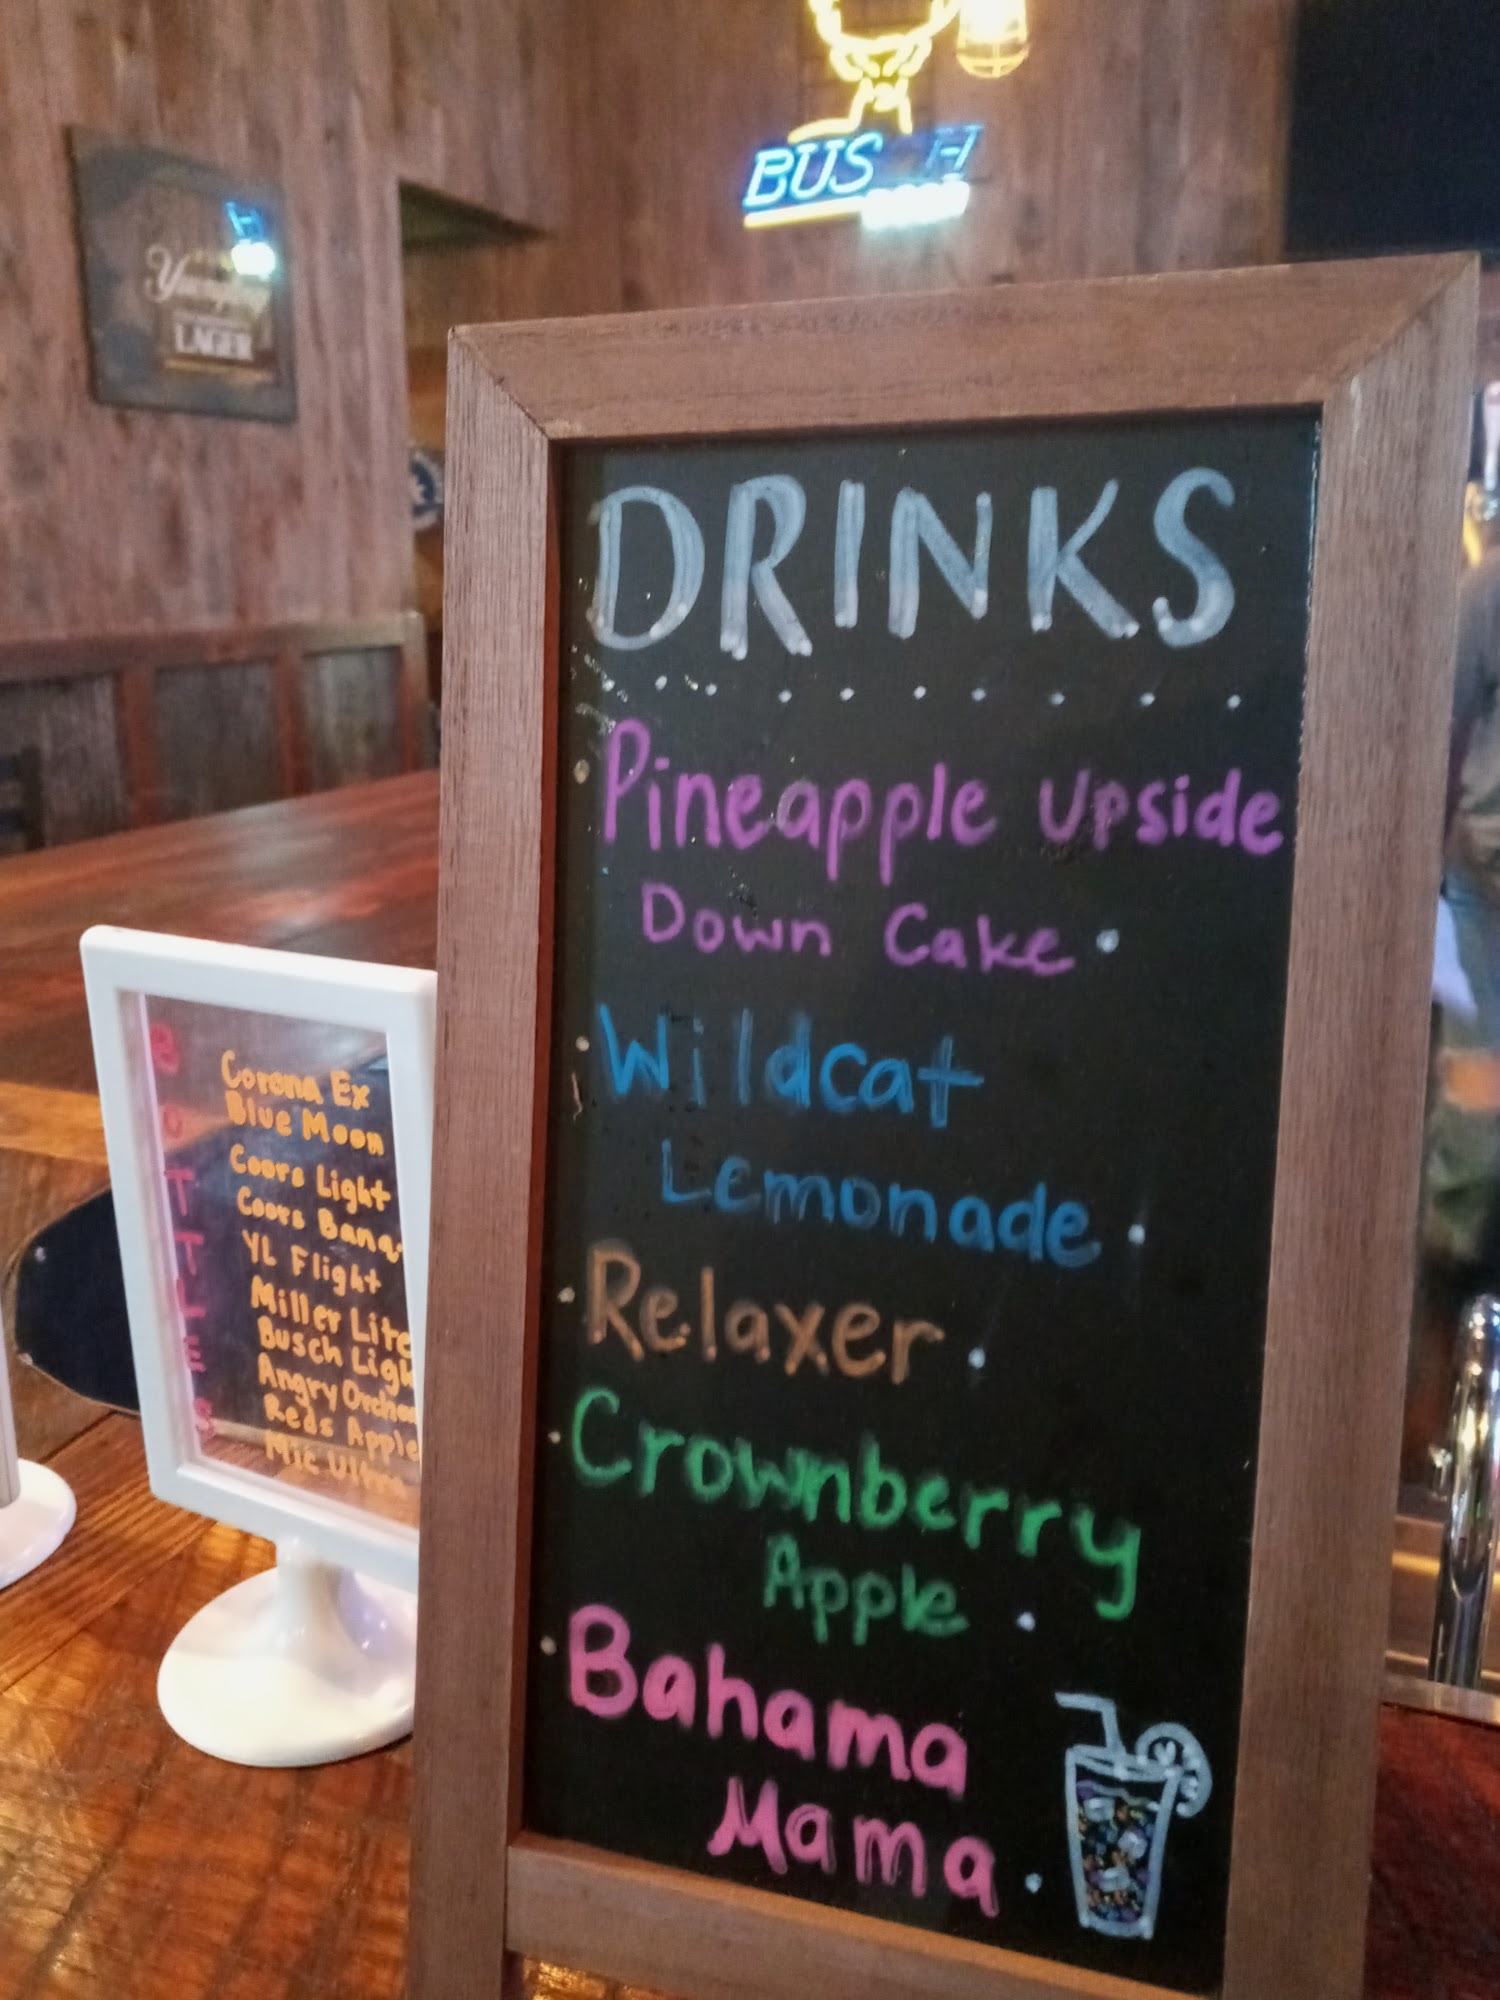 BUSCH
Yuengling
LAGER
DRINKS
Pineapple Upside
Down Cake
Wildcat
Lemonade
Relaxer
Crownberry
Apple
Bahama
Mama
BOTTLES
Corona Ex
Blue Moon
Coors Light
Coors Banq
YL Flight
Miller Lite
Busch Ligh
Angry Orchar
Reds Apple
Mic Ultra